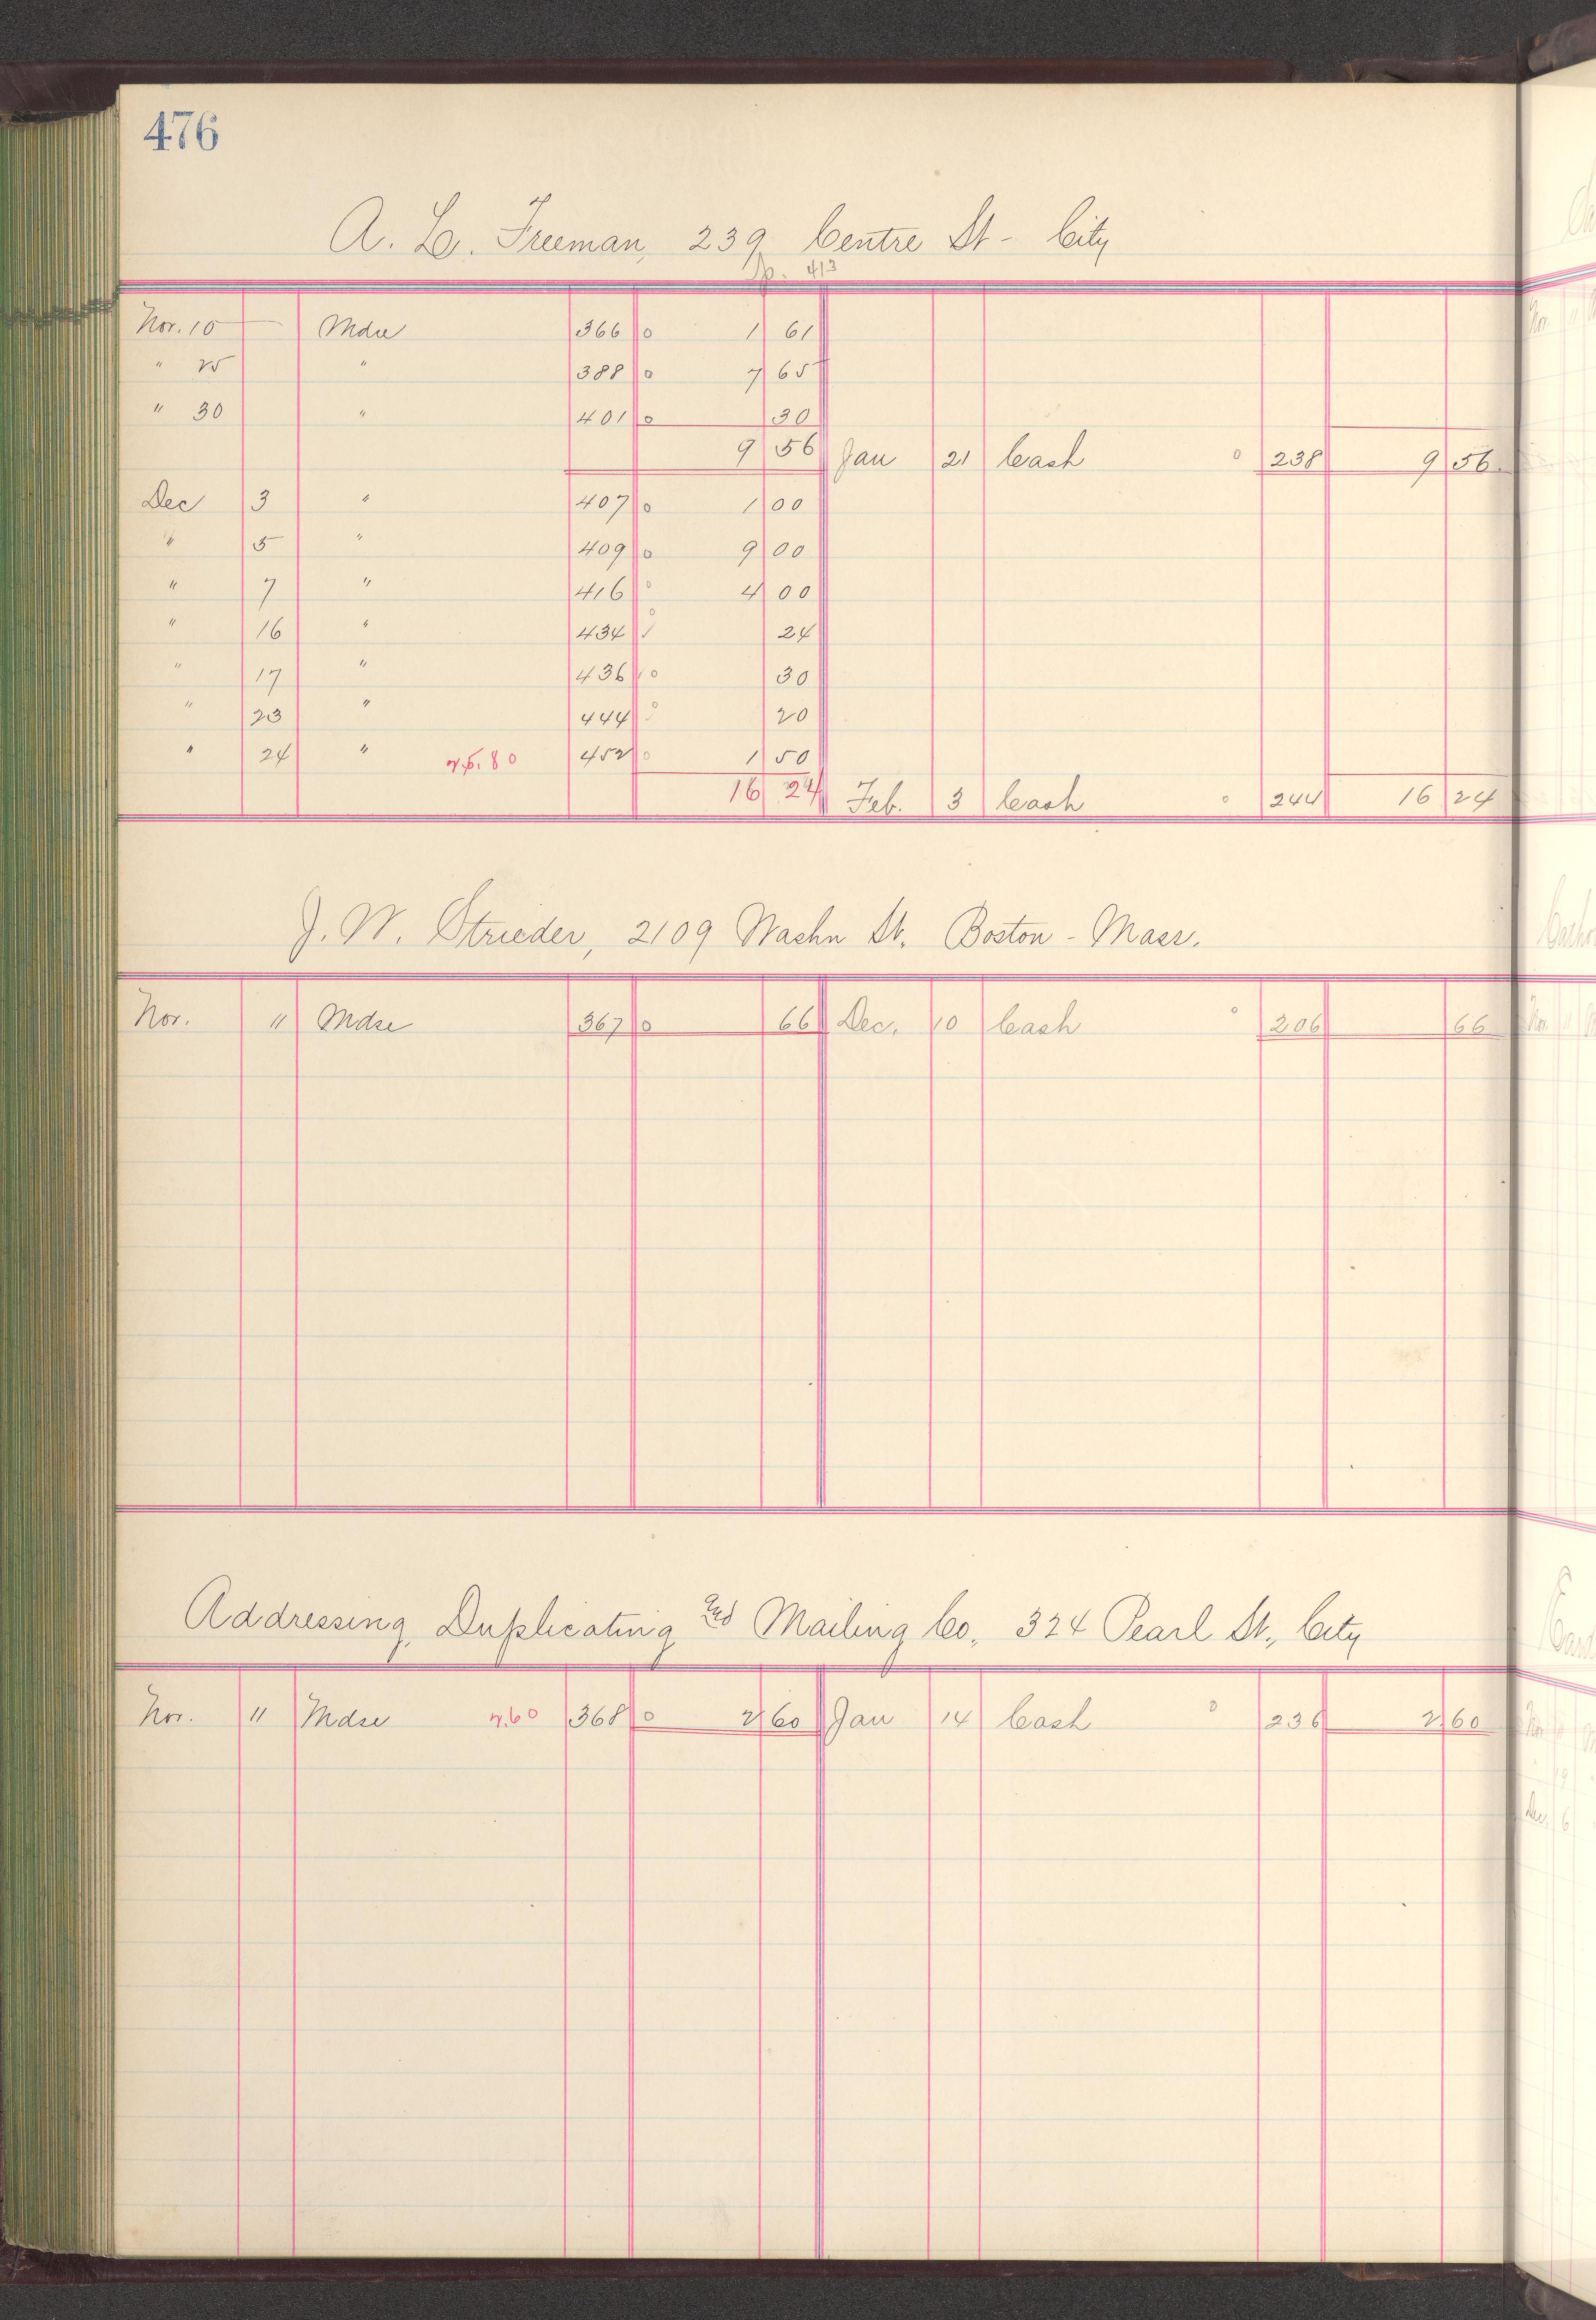 476
A. L. Freeman, 239 Centre St - City
p. 413
Nov. 10 Mdse 366 0 1 61
" 25 " 388 0 7 65
" 30 " 401 0 30
9 56 Jan 21 Cash 0 238 9 56
Dec 3 " 407 0 1 00
" 5 " 409 0 9 00
" 7 " 416 0 4 00
" 16 " 434 0 24
" 17 " 436 0 30
" 23 " 444 0 20
" 24 " 25.80 452 0 1 50
16 24 Feb. 3 Cash 0 244 16 24
J. W. Strieder, 2109 Washn St. Boston - Mass.
Nov. 11 Mdse 367 0 66 Dec. 10 Cash 0 206 66
Addressing, Duplicating and Mailing Co., 324 Pearl St., City
Nov. 11 Mdse 2.60 368 0 2 60 Jan 14 Cash 0 236 2 60